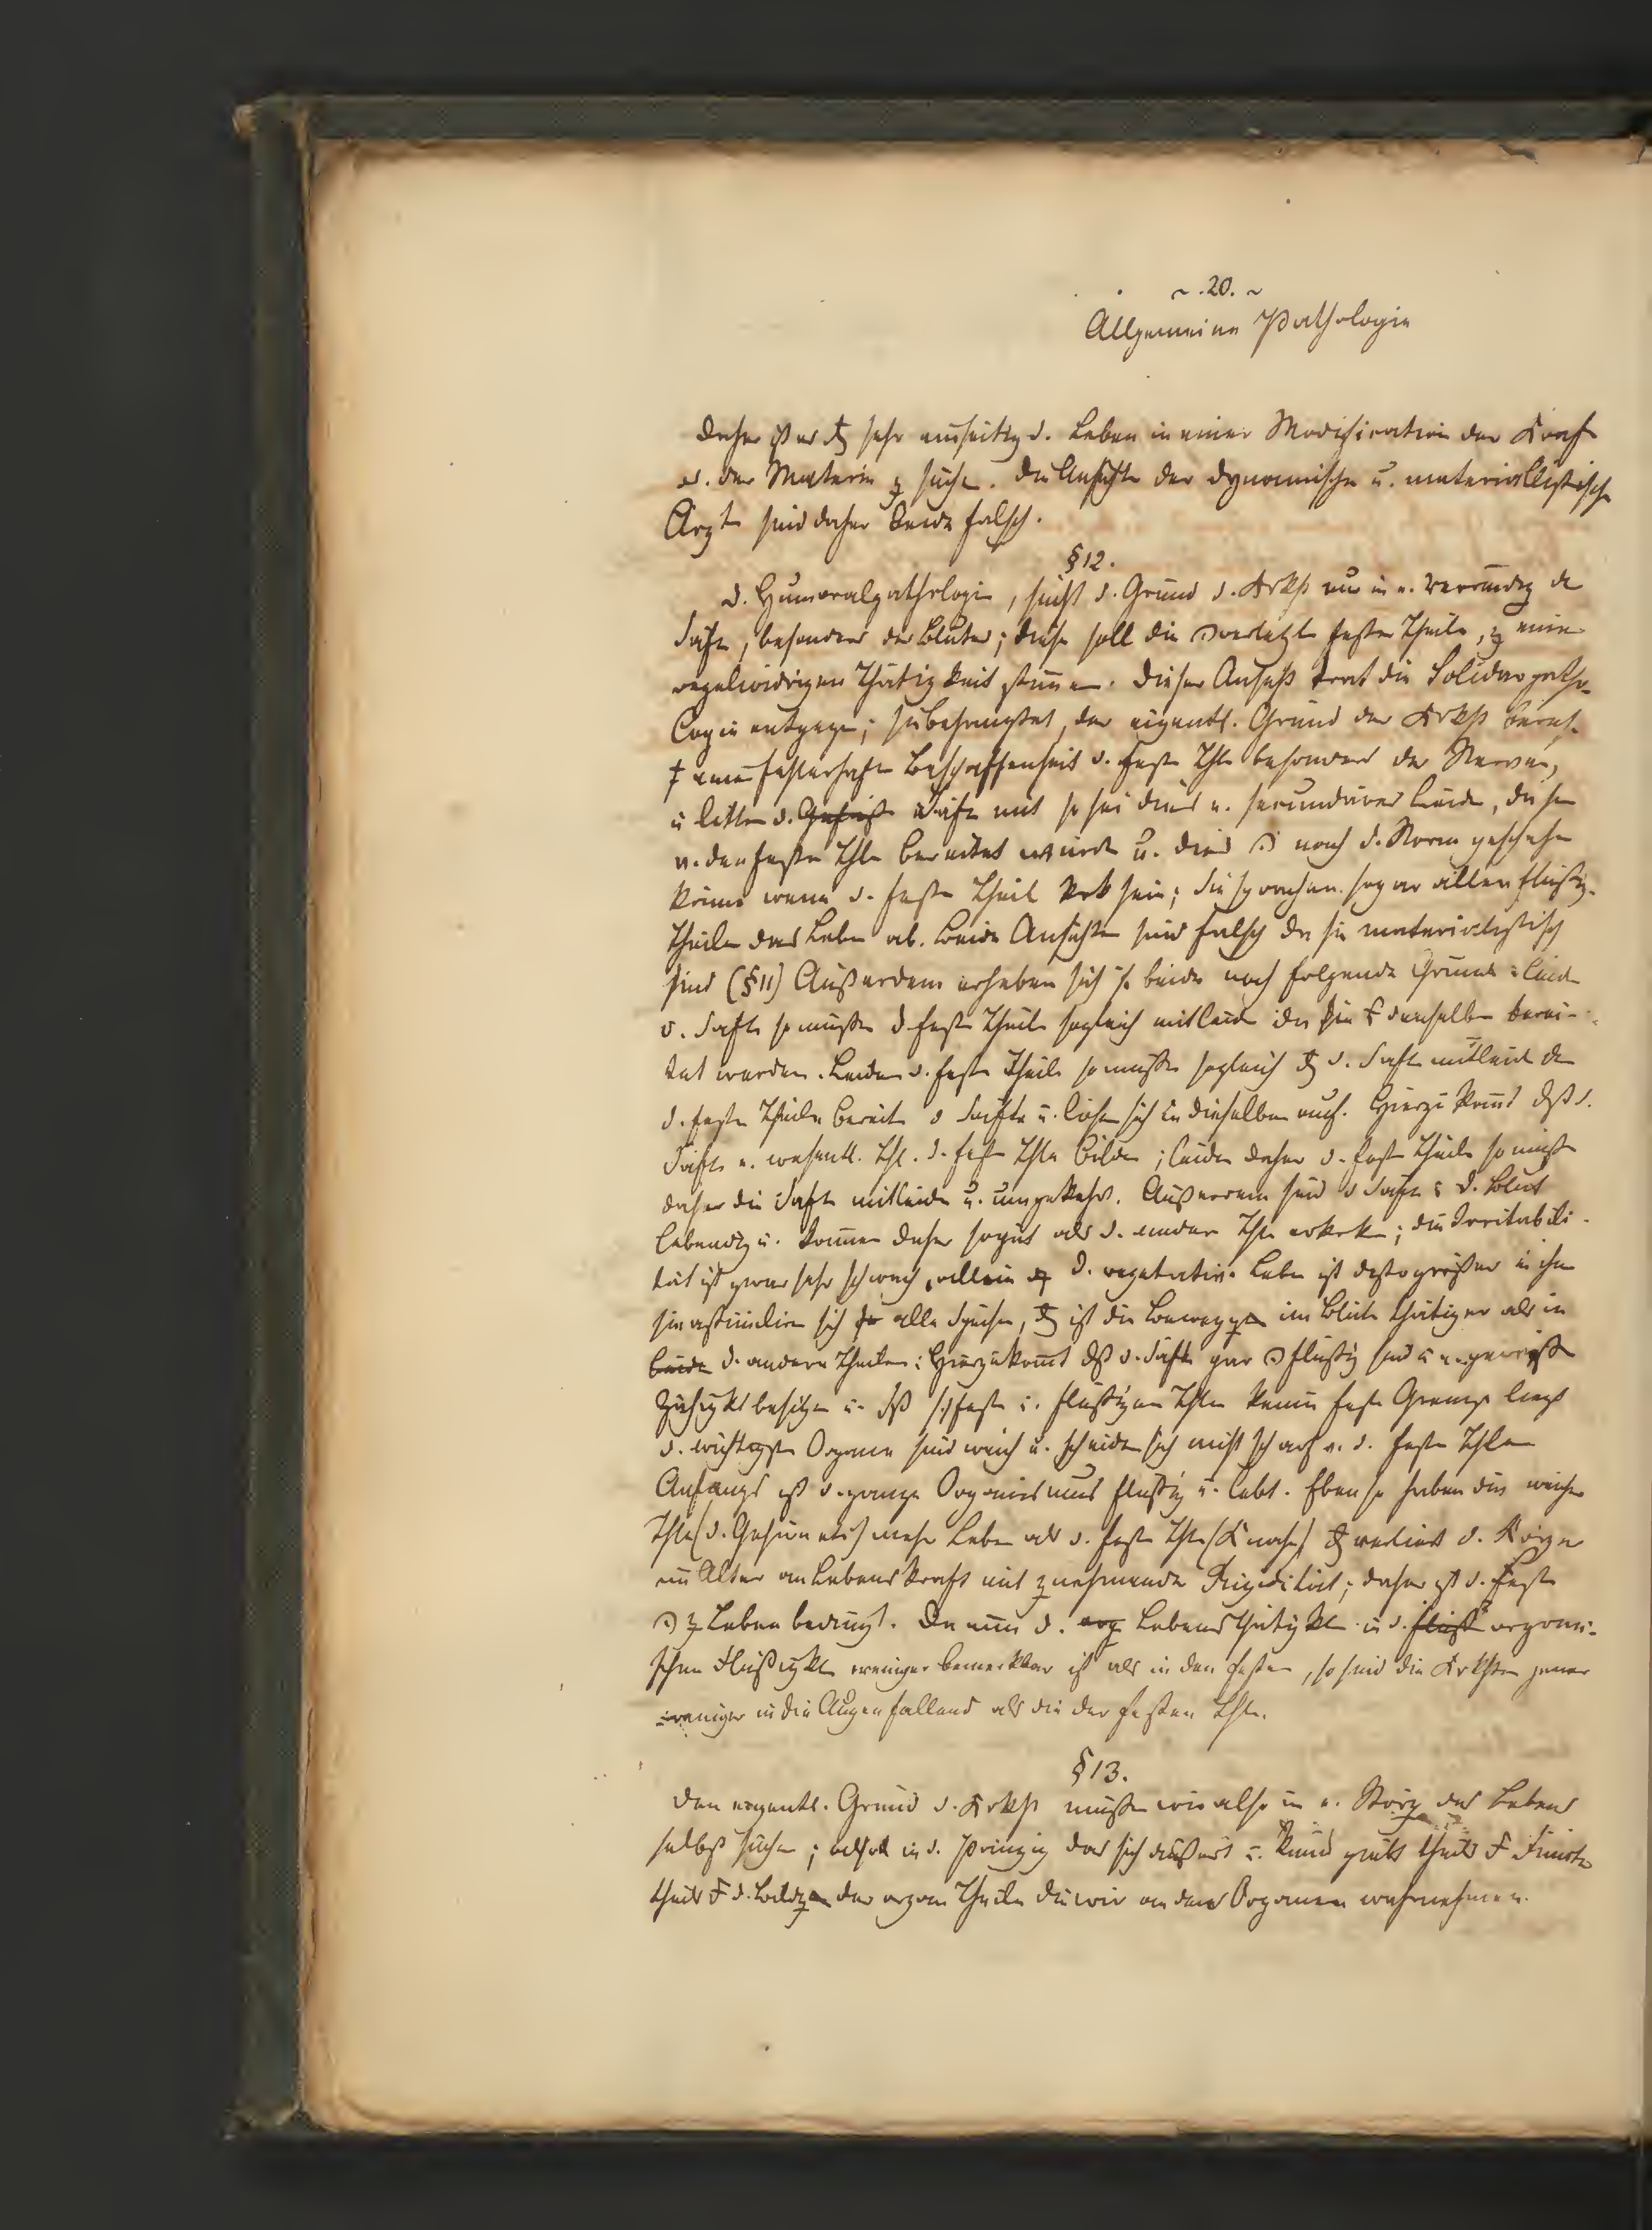 ~ . 20. ~
Allgemeine Pathologie
Daher ist es sehr einseitig d. Leben in einer Modification der Kraft
od. der Materie z suchen. Die Ansichten der dynamischen u. materiallistischen
Ärzte sind daher beide falsch.
§ 12.
D. Humoralpathologie, sucht d. Grund d. Krkht nur in e. Verändrg der
Säfte, besonders des Blutes; diese soll die verletzte festen Theile, z einer
regelwidrigen Thätigkeit stimmen. Dieser Ansicht trat die Solidarpatho-
logie entgegen; sie behauptet, der eigentl. Grund der Krkht beruh.
einer fehlerhaften Beschaffenheit d. festen Thle besonders der Nerven,
u litten d. Säfte mit so sei dies e. secundäres Leiden, da sie
v. den festen Thln bereitet würden u. dies nach d. Norm geschehen
könne wenn d. festen Theile krk sein; Sie sprachen sogar allen flüßig.
Theilen das Leben ab. Beide Ansichten sind falsch da sie materialistisch
sind (§ 11) Außerdem erheben sich beide noch folgende Gründe: Leiden
d. Säfte so müßen d festen Theile sogleich mitleiden da sie denselben berei-
tet werden. Leiden d. festen Theile so müßen sogleich d. Säfte mitleiden
d. festen Theile bereiten d Säfte u. lösen sich in dieselben auf. Hierzu kommt dß d.
Säfte e. wesentl. Thl. d. festen Thle bilden; leiden daher d. festen Theile so müßen
daher die Säfte mitleiden u. umgekehrt. Außerdem sind d Säfte d. Blut
lebendig u. können daher sogut als d. andern Thle erkrken; die Irritabili-
tät ist zwar sehr schwach, allein d. vegetative Leben ist desto größer in ihnen
sie assimiliren sich alle Speisen, ist die Bewegg im Blute thätiger als in
d. andern Theilen: Hierzu kommt dß d. Säfte gar flüßig sind u e. gewiße
Zähigkt besitzen u. dß festen u. flüßigen Thlen keine feste Grenze liegt
d. wichtigsten Organe sind weich u. scheiden sich nicht scharf v. d. festen Thlen
Anfangs ist d. ganze Organismus flüßig u. lebt. Ebenso haben die weichen
Thle (d. Gehirn etc) mehr Leben als d. festen Thle (Knochen) verliert d. Körper
im Alter an Lebenskraft mit zunehmender Rigidität; daher ist d. Feste
z Leben bedingt. Da nun d. Lebensthätigkt in d. organi-
schen Flüßigktn weniger bemerkbar ist als in den festen, so sind die Krkhten jener
weniger in die Augen fallend als die der festen Thle.
§ 13.
Den eigentl. Grund d. Krkht müßen wir also in e. Störg des Lebens
selbst suchen; in d. Prinzip das sich äußert u. kund giebt theils Functn
theils d. Bildg der organ Theile die wir an den Organen wahrnehmen.